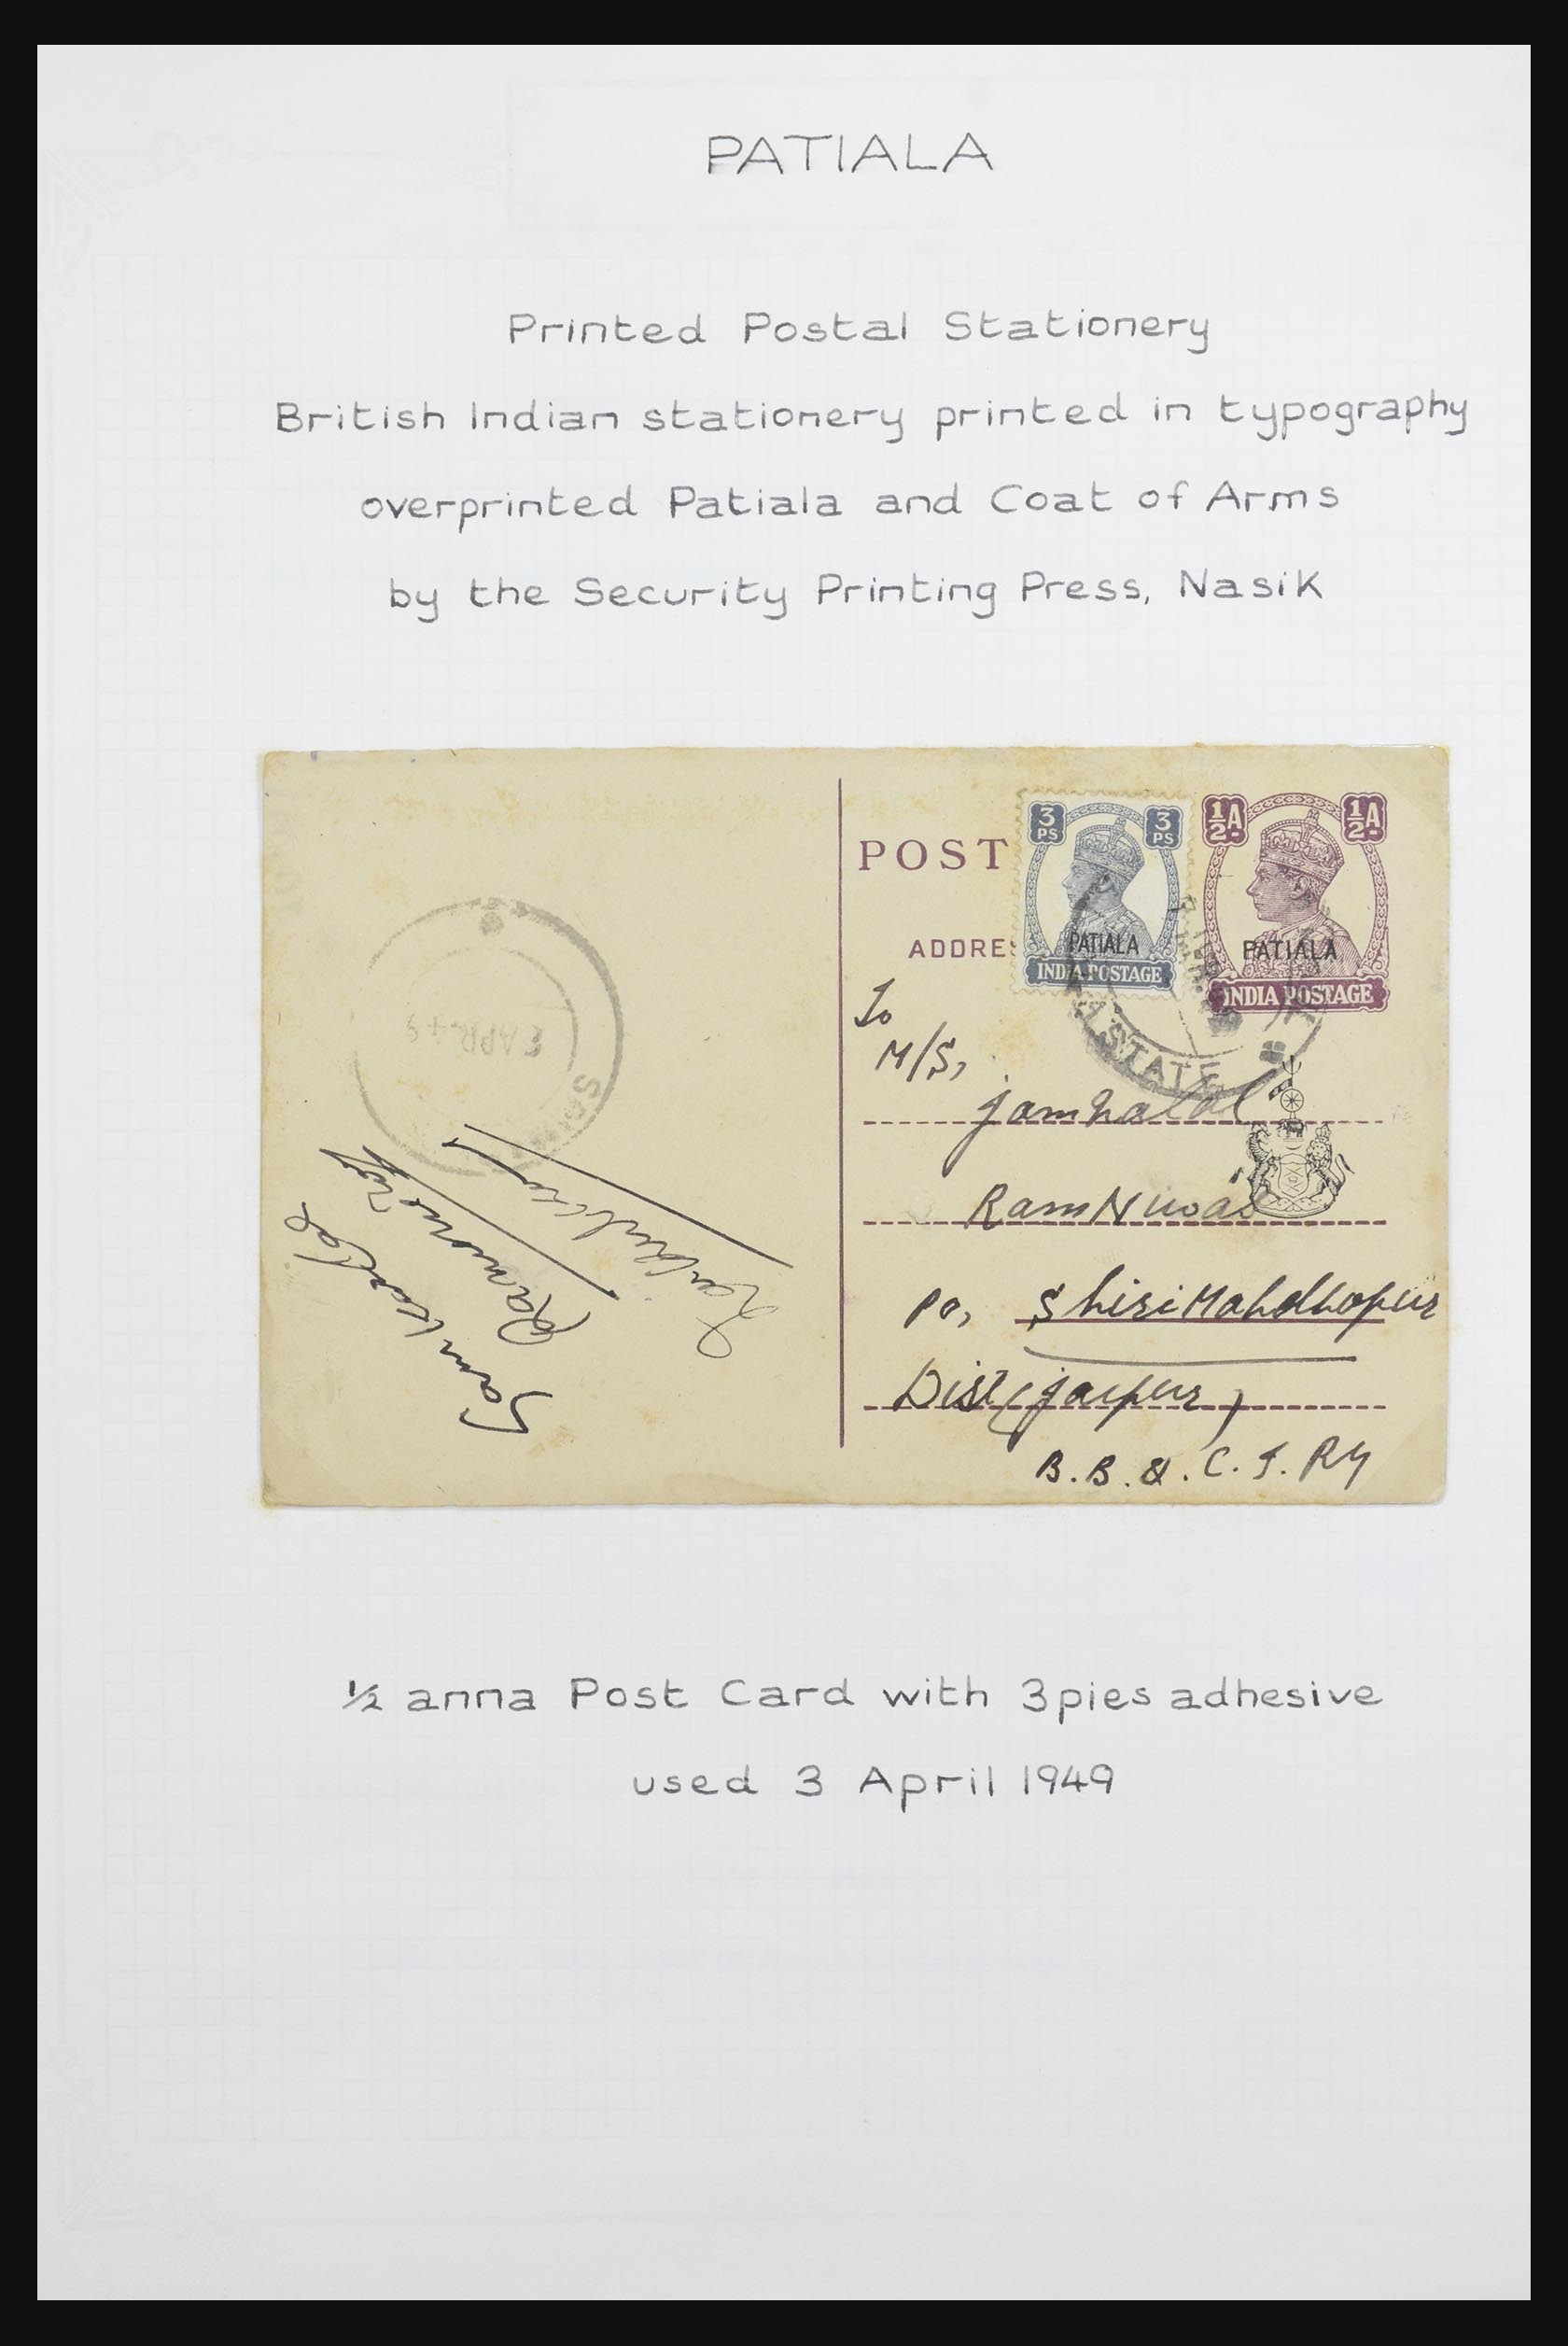 PATIALA
Printed Postal Stationery
British Indian stationery printed in typography
overprinted Patiala and Coat of Arms
by the Security Printing Press, Nasik
POST
ADDRE
3 PS 3 PS
PATIALA
INDIA POSTAGE
½A ½A
PATIALA
INDIA POSTAGE
STATE
APR 49
To
M/S,
Jamnalal
Ram Niwas
PO, Shiri Mahdhopur
Dist (Jaipur)
B.B.&.C.I.Ry
½ anna Post Card with 3 pies adhesive
used 3 April 1949